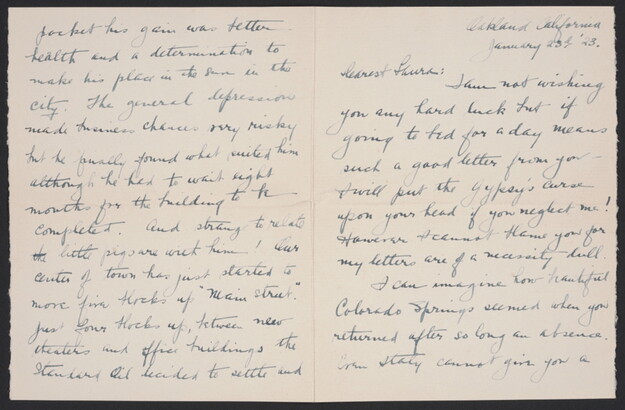 pocket his gain was better
health and a determination to
make his place in the sun in the
city. The general depression
made business chances very risky
but he finally found what suited him
although he had to wait eight
months for the building to be
completed. And strange to relate
the little pigs are with him! Our
center of town has just started to
move five blocks up "Main Street".
Just four blocks up, between new
theaters and office buildings the
Standard Oil decided to settle and
Oakland California
January 23rd '23.
Dearest Laura:
I am not wishing
you any hard luck but if
going to bed for a day means
such a good letter from you -
I will put the gypsy's curse
upon your head if you neglect me!
However I cannot blame you for
my letters are of a necessity dull.
I can imagine how beautiful
Colorado Springs seemed when you
returned after so long an absence.
Even Italy cannot give you a